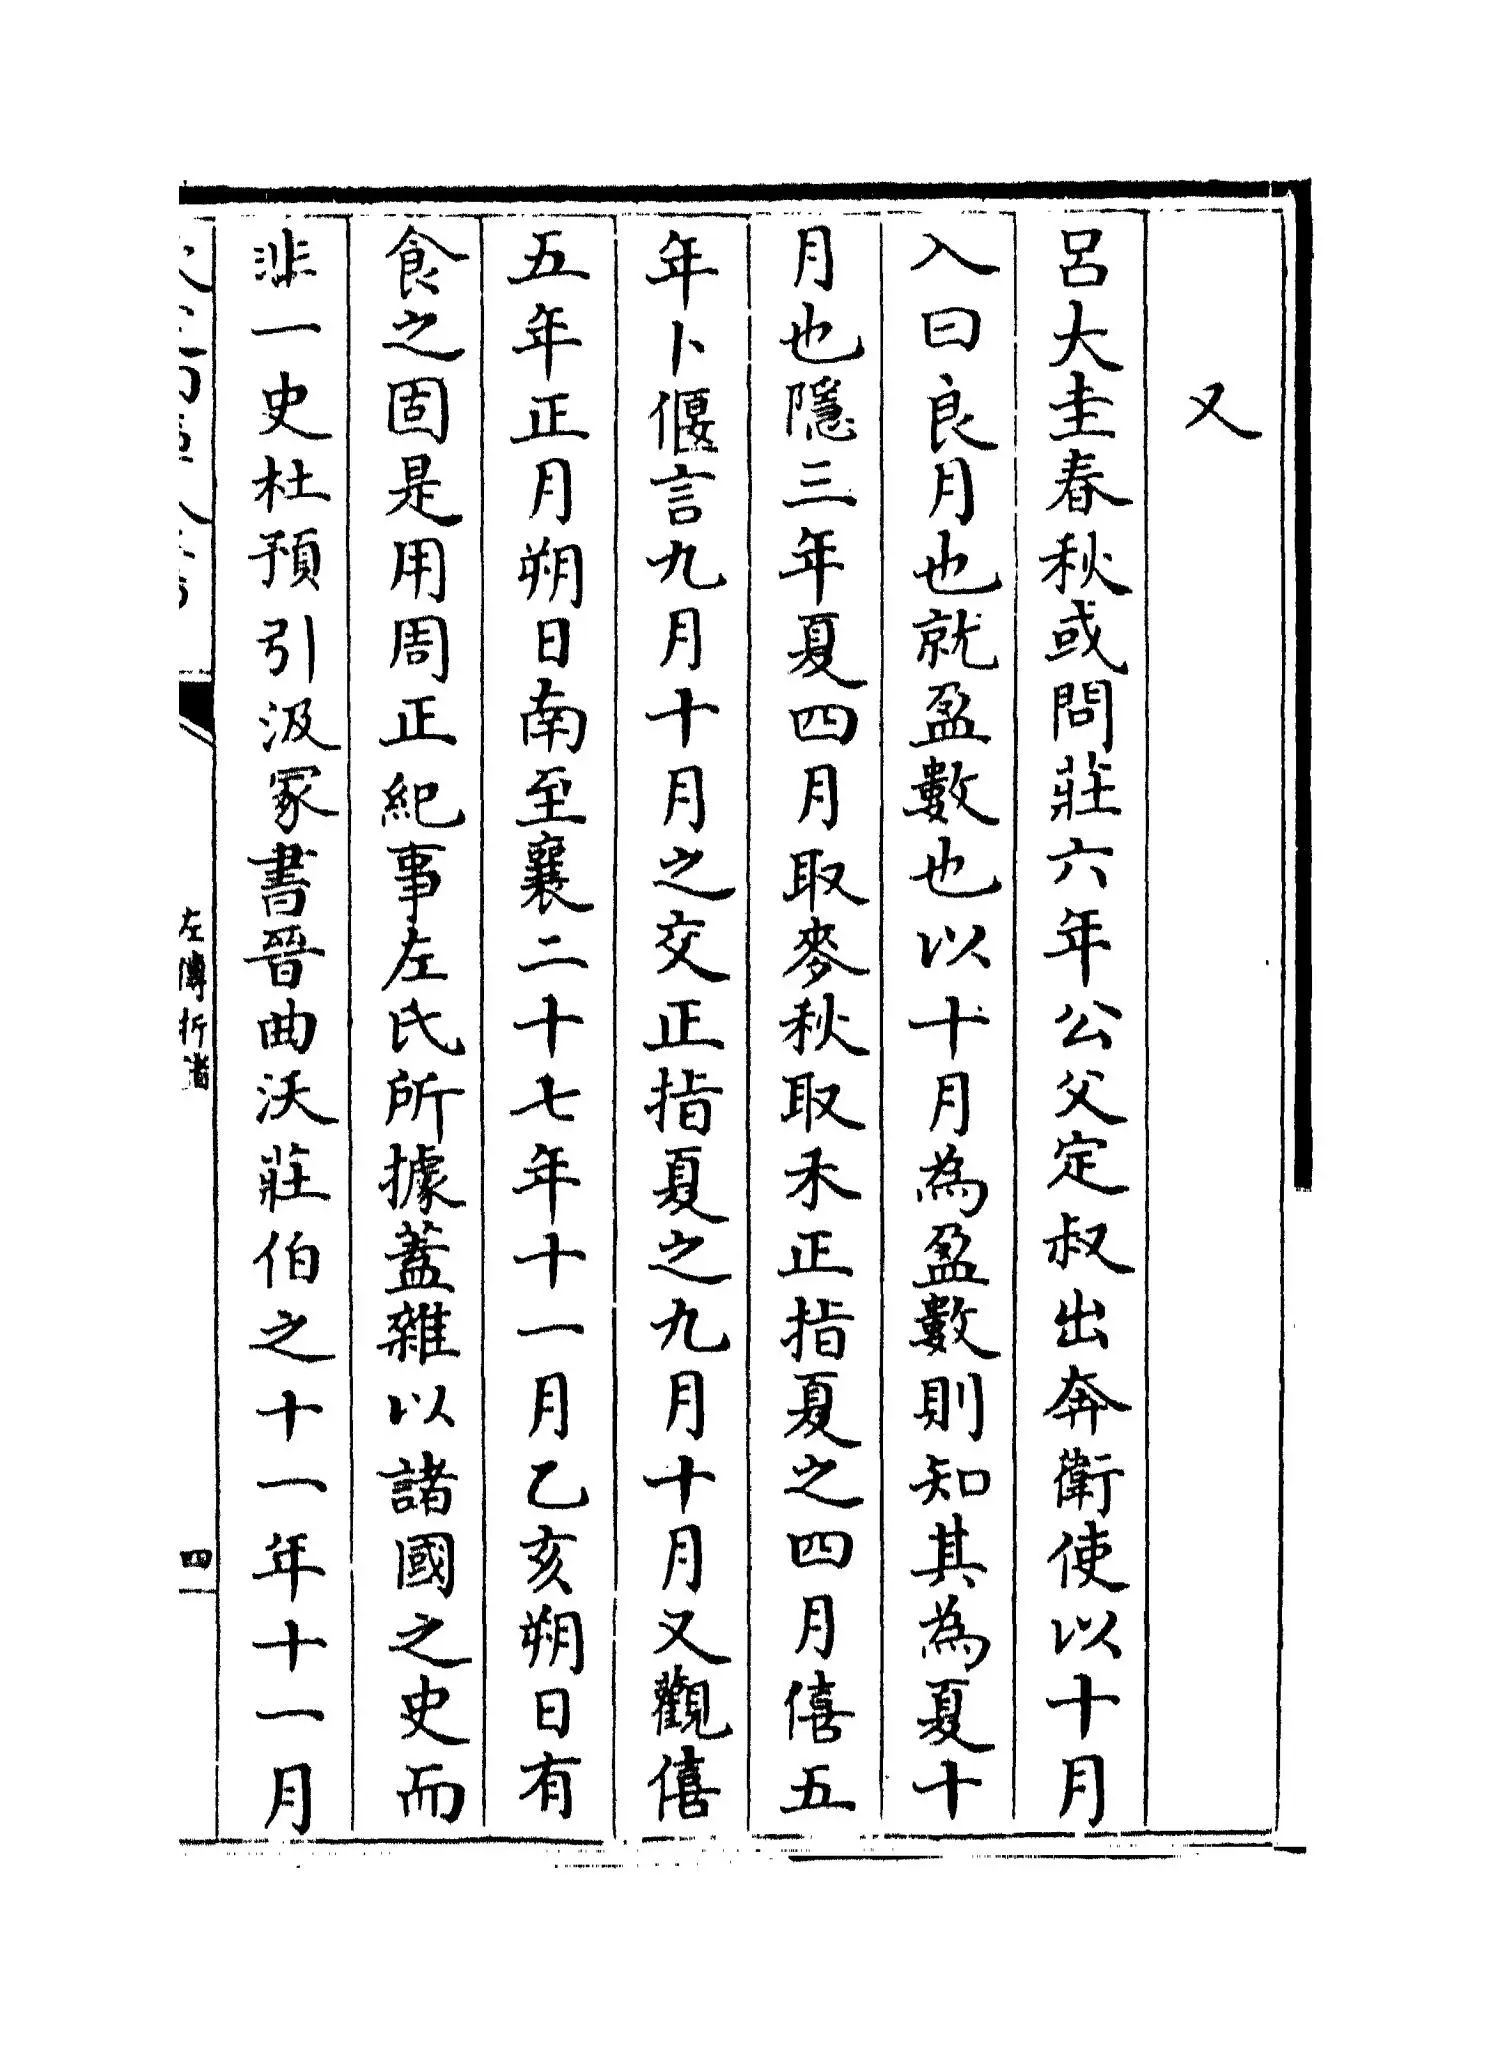 又
呂大圭春秋或問莊六年公父定叔出奔衛使以十月
入曰良月也就盈數也以十月為盈數則知其為夏十
月也隱三年夏四月取麥秋取禾正指夏之四月僖五
年卜偃言九月十月之交正指夏之九月十月又觀僖
五年正月朔日南至襄二十七年十一月乙亥朔日有
食之固是用周正紀事左氏所據蓋雜以諸國之史而
非一史杜預引汲冢書晉曲沃莊伯之十一年十一月
左傳折諸
四